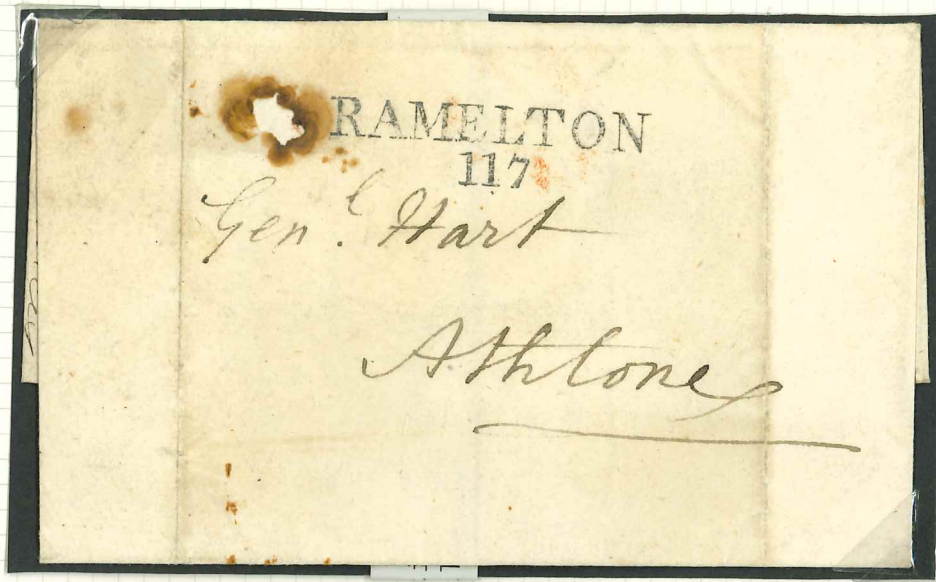 RAMELTON
117
Genl. Hart
Athlone